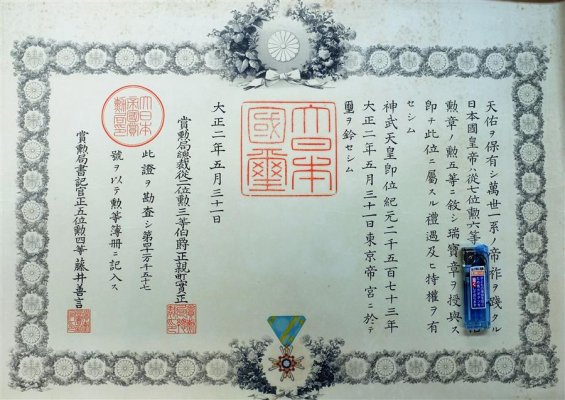 天佑ヲ保有シ萬世一系ノ帝祚ヲ踐タル
日本國皇帝ハ從七位勲六等
勲章ノ勲五等ニ敍シ瑞寶章ヲ授與ス
即チ此位ニ屬スル禮遇及ヒ特權ヲ有
セシム
神武天皇即位紀元二千五百七十三年
大正二年五月三十一日東京帝宮ニ於テ
璽ヲ鈐セシム
大日本
國璽
大正二年五月三十一日
賞勲局總裁從二位勲三等伯爵正親町實正
此證ヲ勘査シ第四十万千五十七
號ヲ以テ勲等簿冊ニ記入ス
賞勲局書記官正五位勲四等藤井善言
大日本
帝國賞
勲局印